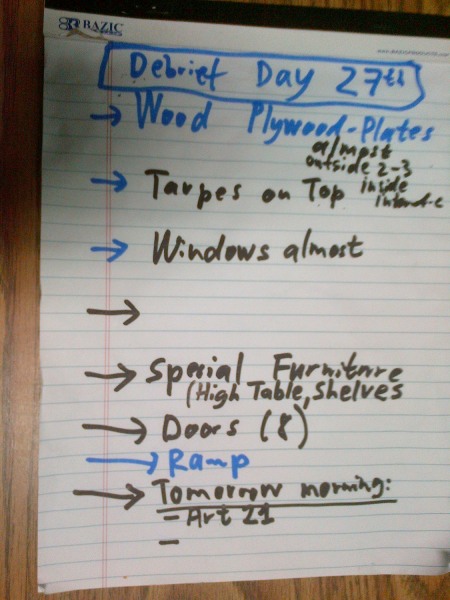 BAZIC
Debrief Day 27th
→ Wood Plywood-Plates
almost
outside 2-3
→ Tarpes on Top inside
→ Windows almost
→
→ Special Furniture
(High Table, Shelves
→ Doors (8)
→ Ramp
→ Tomorrow morning:
- Art 21
-